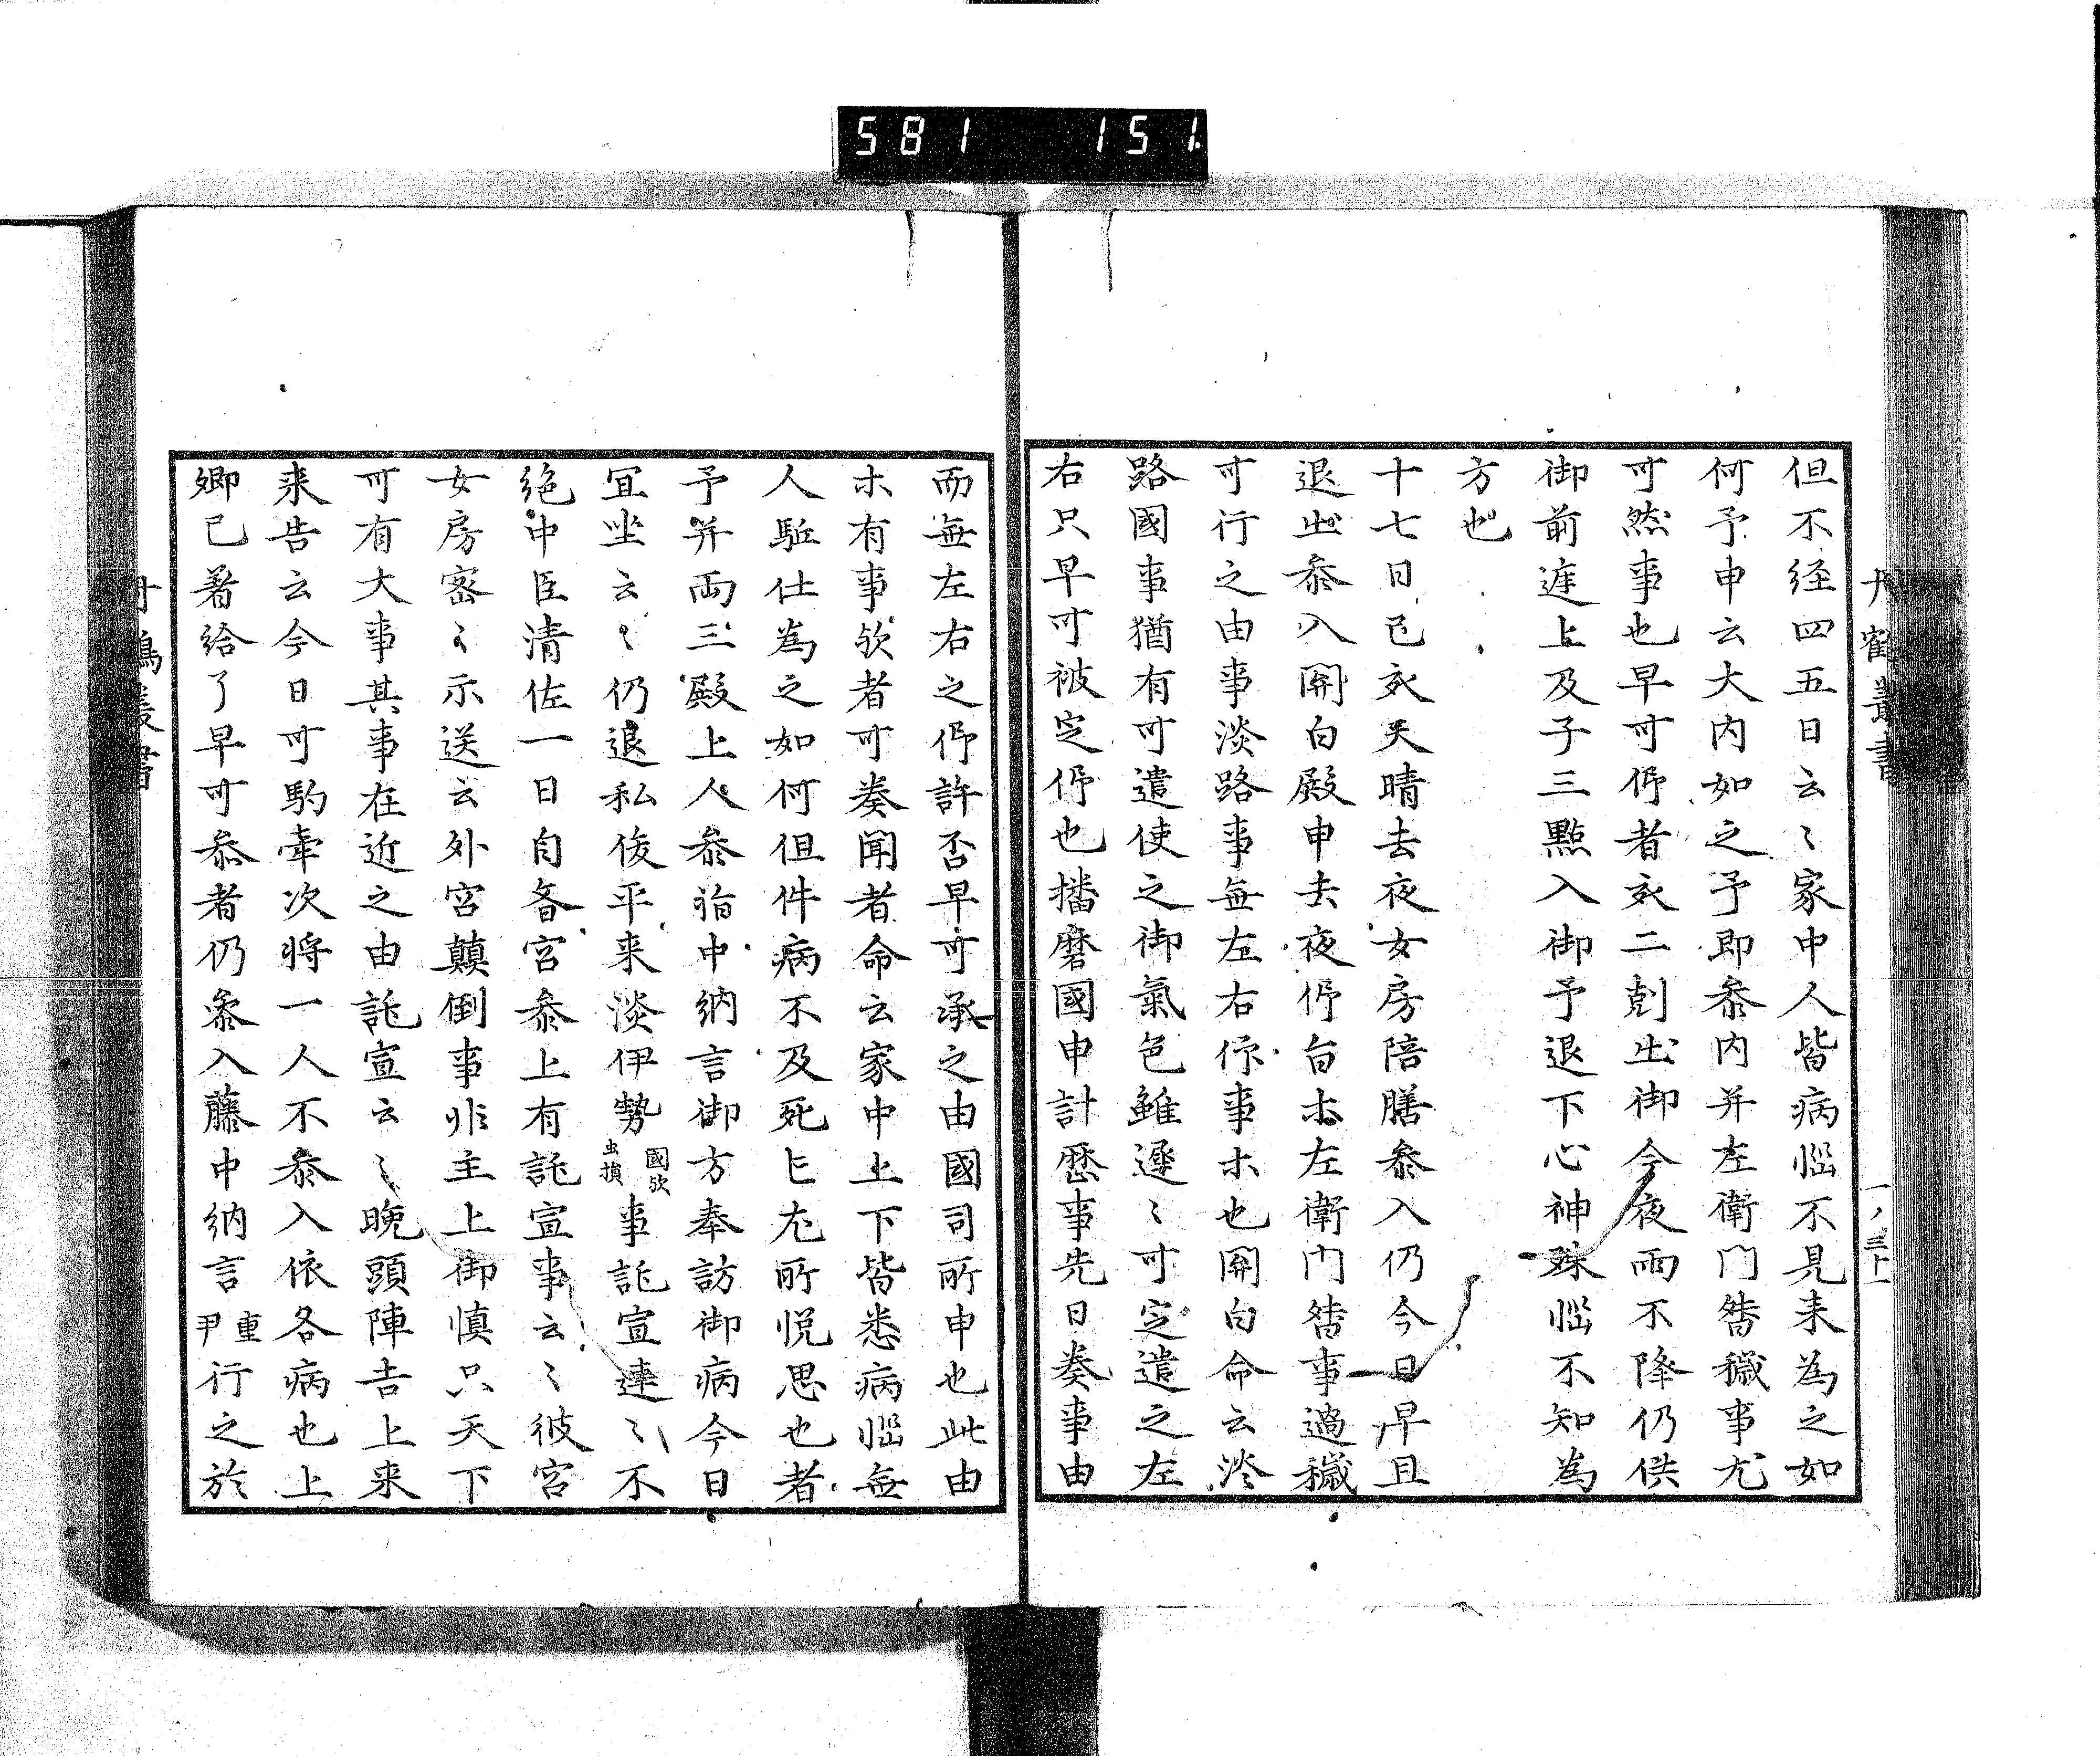 581 151
丹鶴叢書
一ノ三十一
但不経四五日云〻家中人皆病悩不見来為之如
何予申云大内如之予即参内并左衛門督穢事尤
可然事也早可仰者亥二剋出御今夜雨不降仍供
御前遅上及子三點入御予退下心神殊悩不知為
方也
十七日己亥天晴去夜女房陪膳参入仍今日早旦
退出参入関白殿申去夜仰旨木左衛門督事過穢
可行之由事淡路事無左右仰事木也関白命云淡
路國事猶有可遣使之御氣色雖遅〻可定遣之左
右只早可被定仰也播磨國申計歴事先日奏事由
而無左右之仰許否早可承之由國司所申也此由
木有事欤者可奏聞者命云家中上下皆悉病悩無
人駈仕為之如何但件病不及死亡尤所悦思也者
予并両三殿上人参治中納言御方奉訪御病今日
冝坐云〻仍退私俊平来淡伊勢國欤虫損事託宣連〻不
絶中臣清佐一日自斎宮参上有託宣事云〻彼宮
女房密〻示送云外宮顛倒事非主上御慎只天下
可有大事其事在近之由託宣云〻晩頭陣吉上来
来告云今日可駒牽次将一人不参入依各病也上
卿已着給了早可参者仍参入藤中納言重尹行之於